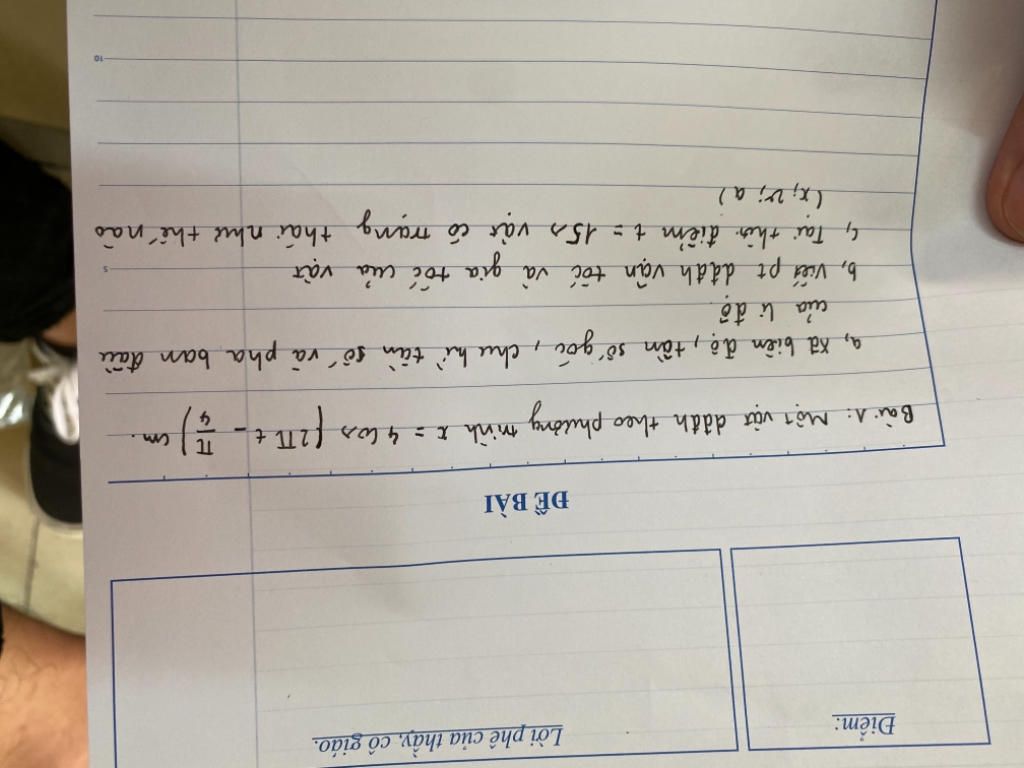 Điểm:
Lời phê của thầy, cô giáo.
ĐỀ BÀI
Bài 1: Một vật dđđh theo phương trình x = 4 cos (2π t - π/4) cm.
a, xđ biên độ, tần số góc, chu kì tần số và pha ban đầu
của li độ.
b, viết pt dđđh vận tốc và gia tốc của vật
5
c, Tại thời điểm t = 15 s vật có trạng thái như thế nào
(x; v; a)
10